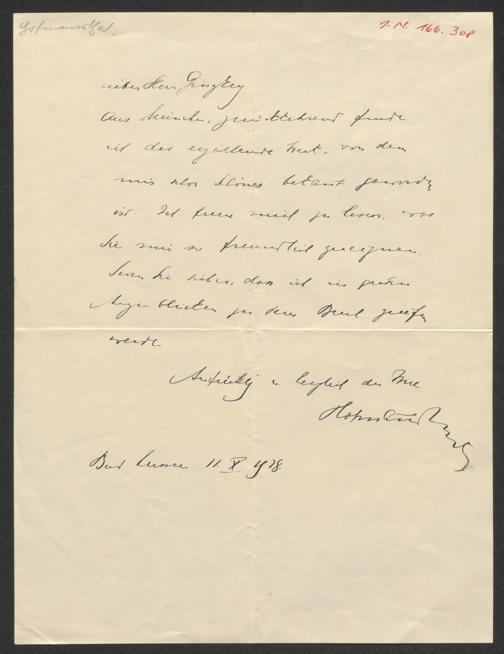 Hofmannsthal.
I.N. 166.308
lieber Herr Ginzkey
aus München zurückkehrend finde
ich das erzählende Werk, von dem
mir schon Schönes bekannt geworden
ist. Ich freue mich zu lesen, was
Sie mir so freundlich zueignen.
Seien Sie sicher, dass ich in guten
Augenblicken zu dem Buch greifen
werde.
Aufrichtig u. herzlich der Ihre
Hofmannsthal
Bad Aussee 11 X 1928